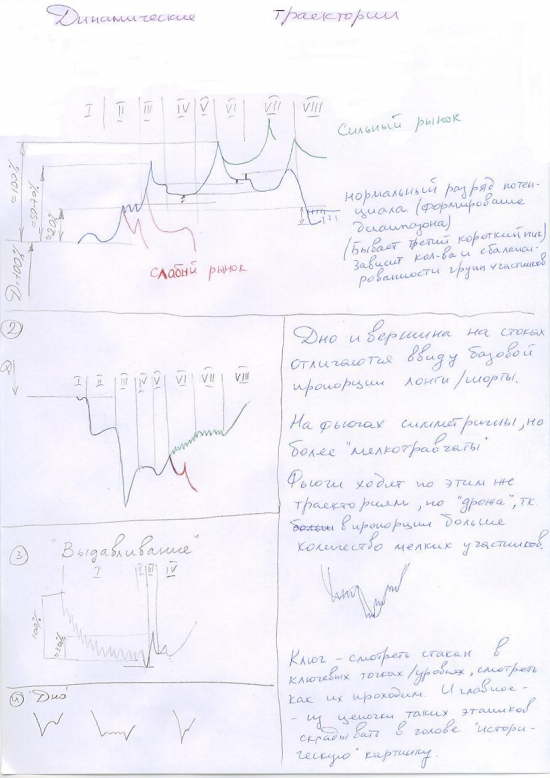 Динамические траектории
I II III IV V VI VII VIII
Сильный рынок
нормальный разряд потен-
циала (формирование
диапазона)
(Бывает третий короткий пик)
Зависит кол-ва и сбаланси-
рованности групп участников
слабый рынок
2
I II III IV V VI VII VIII
Дно и вершина на стоках
отличаются ввиду базовой
пропорции лонги/шорты.
На фьючах симметричны, но
более "мелкотравчаты"
Фьючи ходят по этим же
траекториям, но "дрожа", т.к.
в пропорции больше
количество мелких участников.
3 "Выдавливание"
I II III IV
Ключ - смотреть стакан в
ключевых точках/уровнях, смотреть
как их проходим. И главное -
- из цепочки таких этапиков
складывать в голове "истори-
ческую" картинку.
4 "Дно"